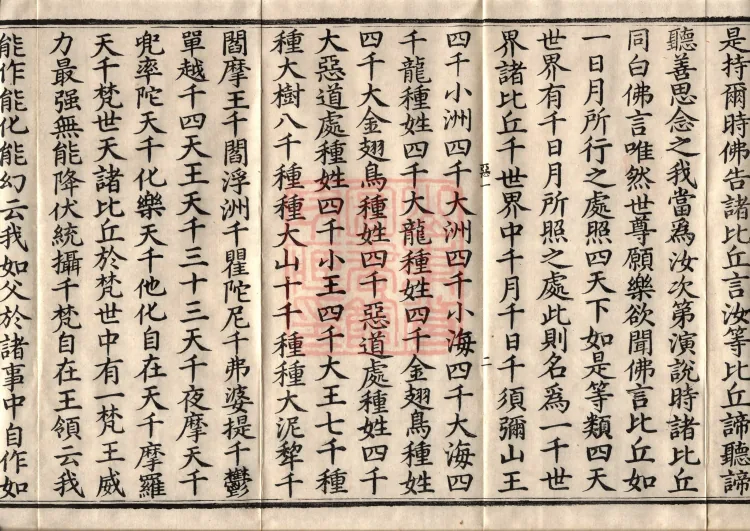 是持爾時佛告諸比丘言汝等比丘諦聽諦
聽善思念之我當為汝次第演說時諸比丘
同白佛言唯然世尊願樂欲聞佛言比丘如
一日月所行之處照四天下如是等類四天
世界有千日月所照之處此則名為一千世
界諸比丘千世界中千月千日千須彌山王
惡一
二
四千小洲四千大洲四千小海四千大海四
千龍種姓四千大龍種姓四千金翅鳥種姓
四千大金翅鳥種姓四千惡道處種姓四千
大惡道處種姓四千小王四千大王七千種
種大樹八千種種大山十千種種大泥犁千
閻摩王千閻浮洲千瞿陀尼千弗婆提千鬱
單越千四天王天千三十三天千夜摩天千
兜率陀天千化樂天千他化自在天千摩羅
天千梵世天諸比丘於梵世中有一梵王威
力最强無能降伏統攝千梵自在王領云我
能作能化能幻云我如父於諸事中自作如